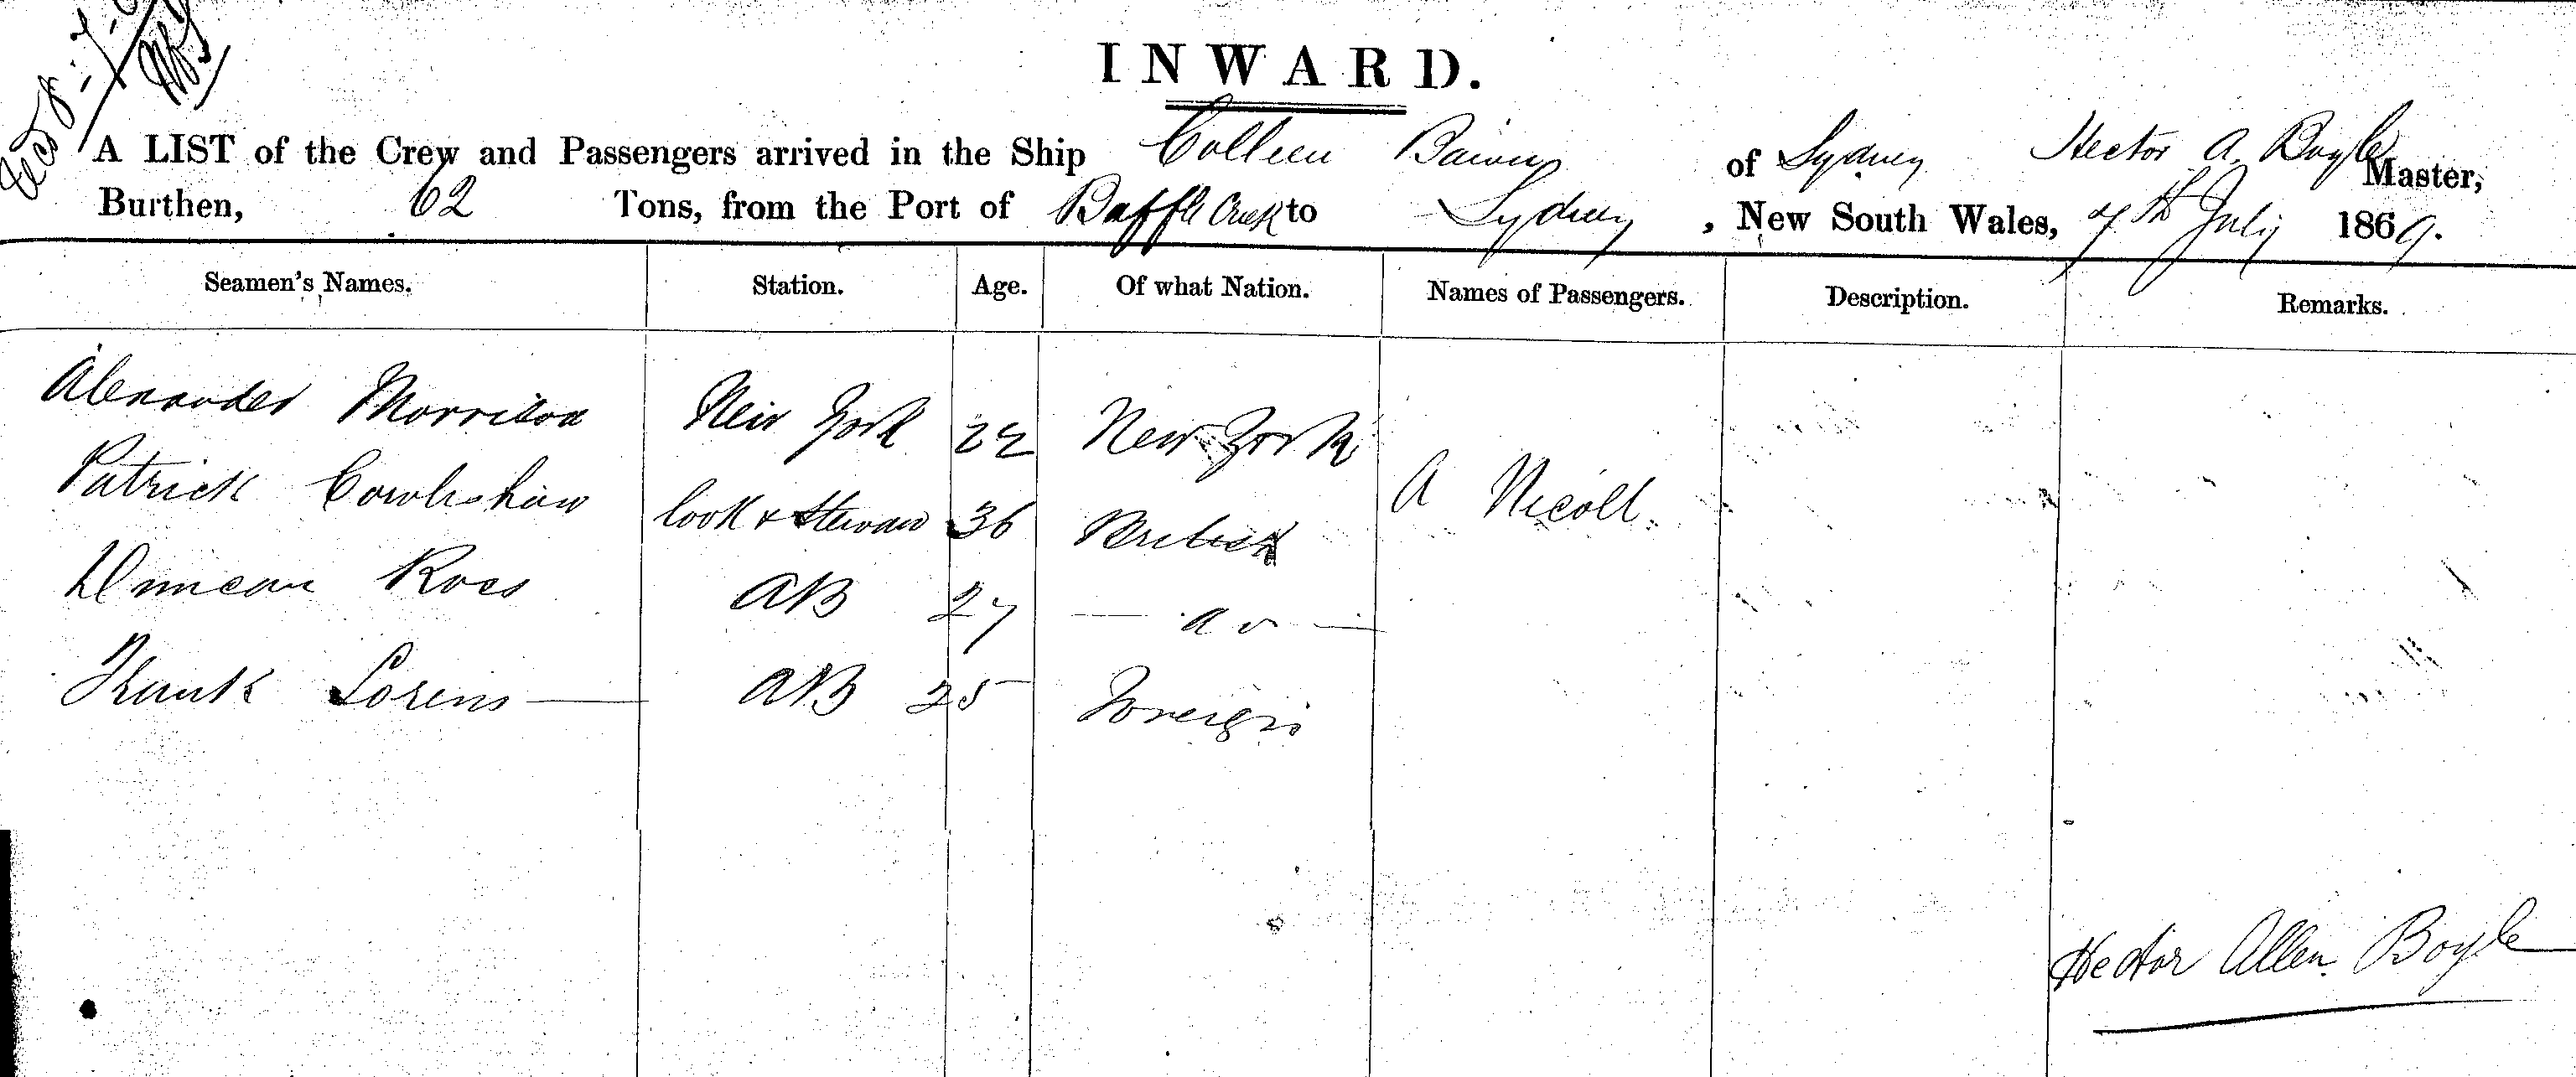 INWARD.
A LIST of the Crew and Passengers arrived in the Ship Colleen of Sydney Hector A. Boyle Master,
Burthen, 62 Tons, from the Port of Baffle Creek to Sydney, New South Wales, 7th July 1869.
Seamen's Names. Station. Age. Of what Nation. Names of Passengers. Description. Remarks.
Alexander Morrison New York 22 New York
Patrick Cowlishaw Cook & Steward 36 British A Nicoll
Duncan Ross AB 27 — do —
Frank Lorens AB 25 Foreign
Hector Allen Boyle